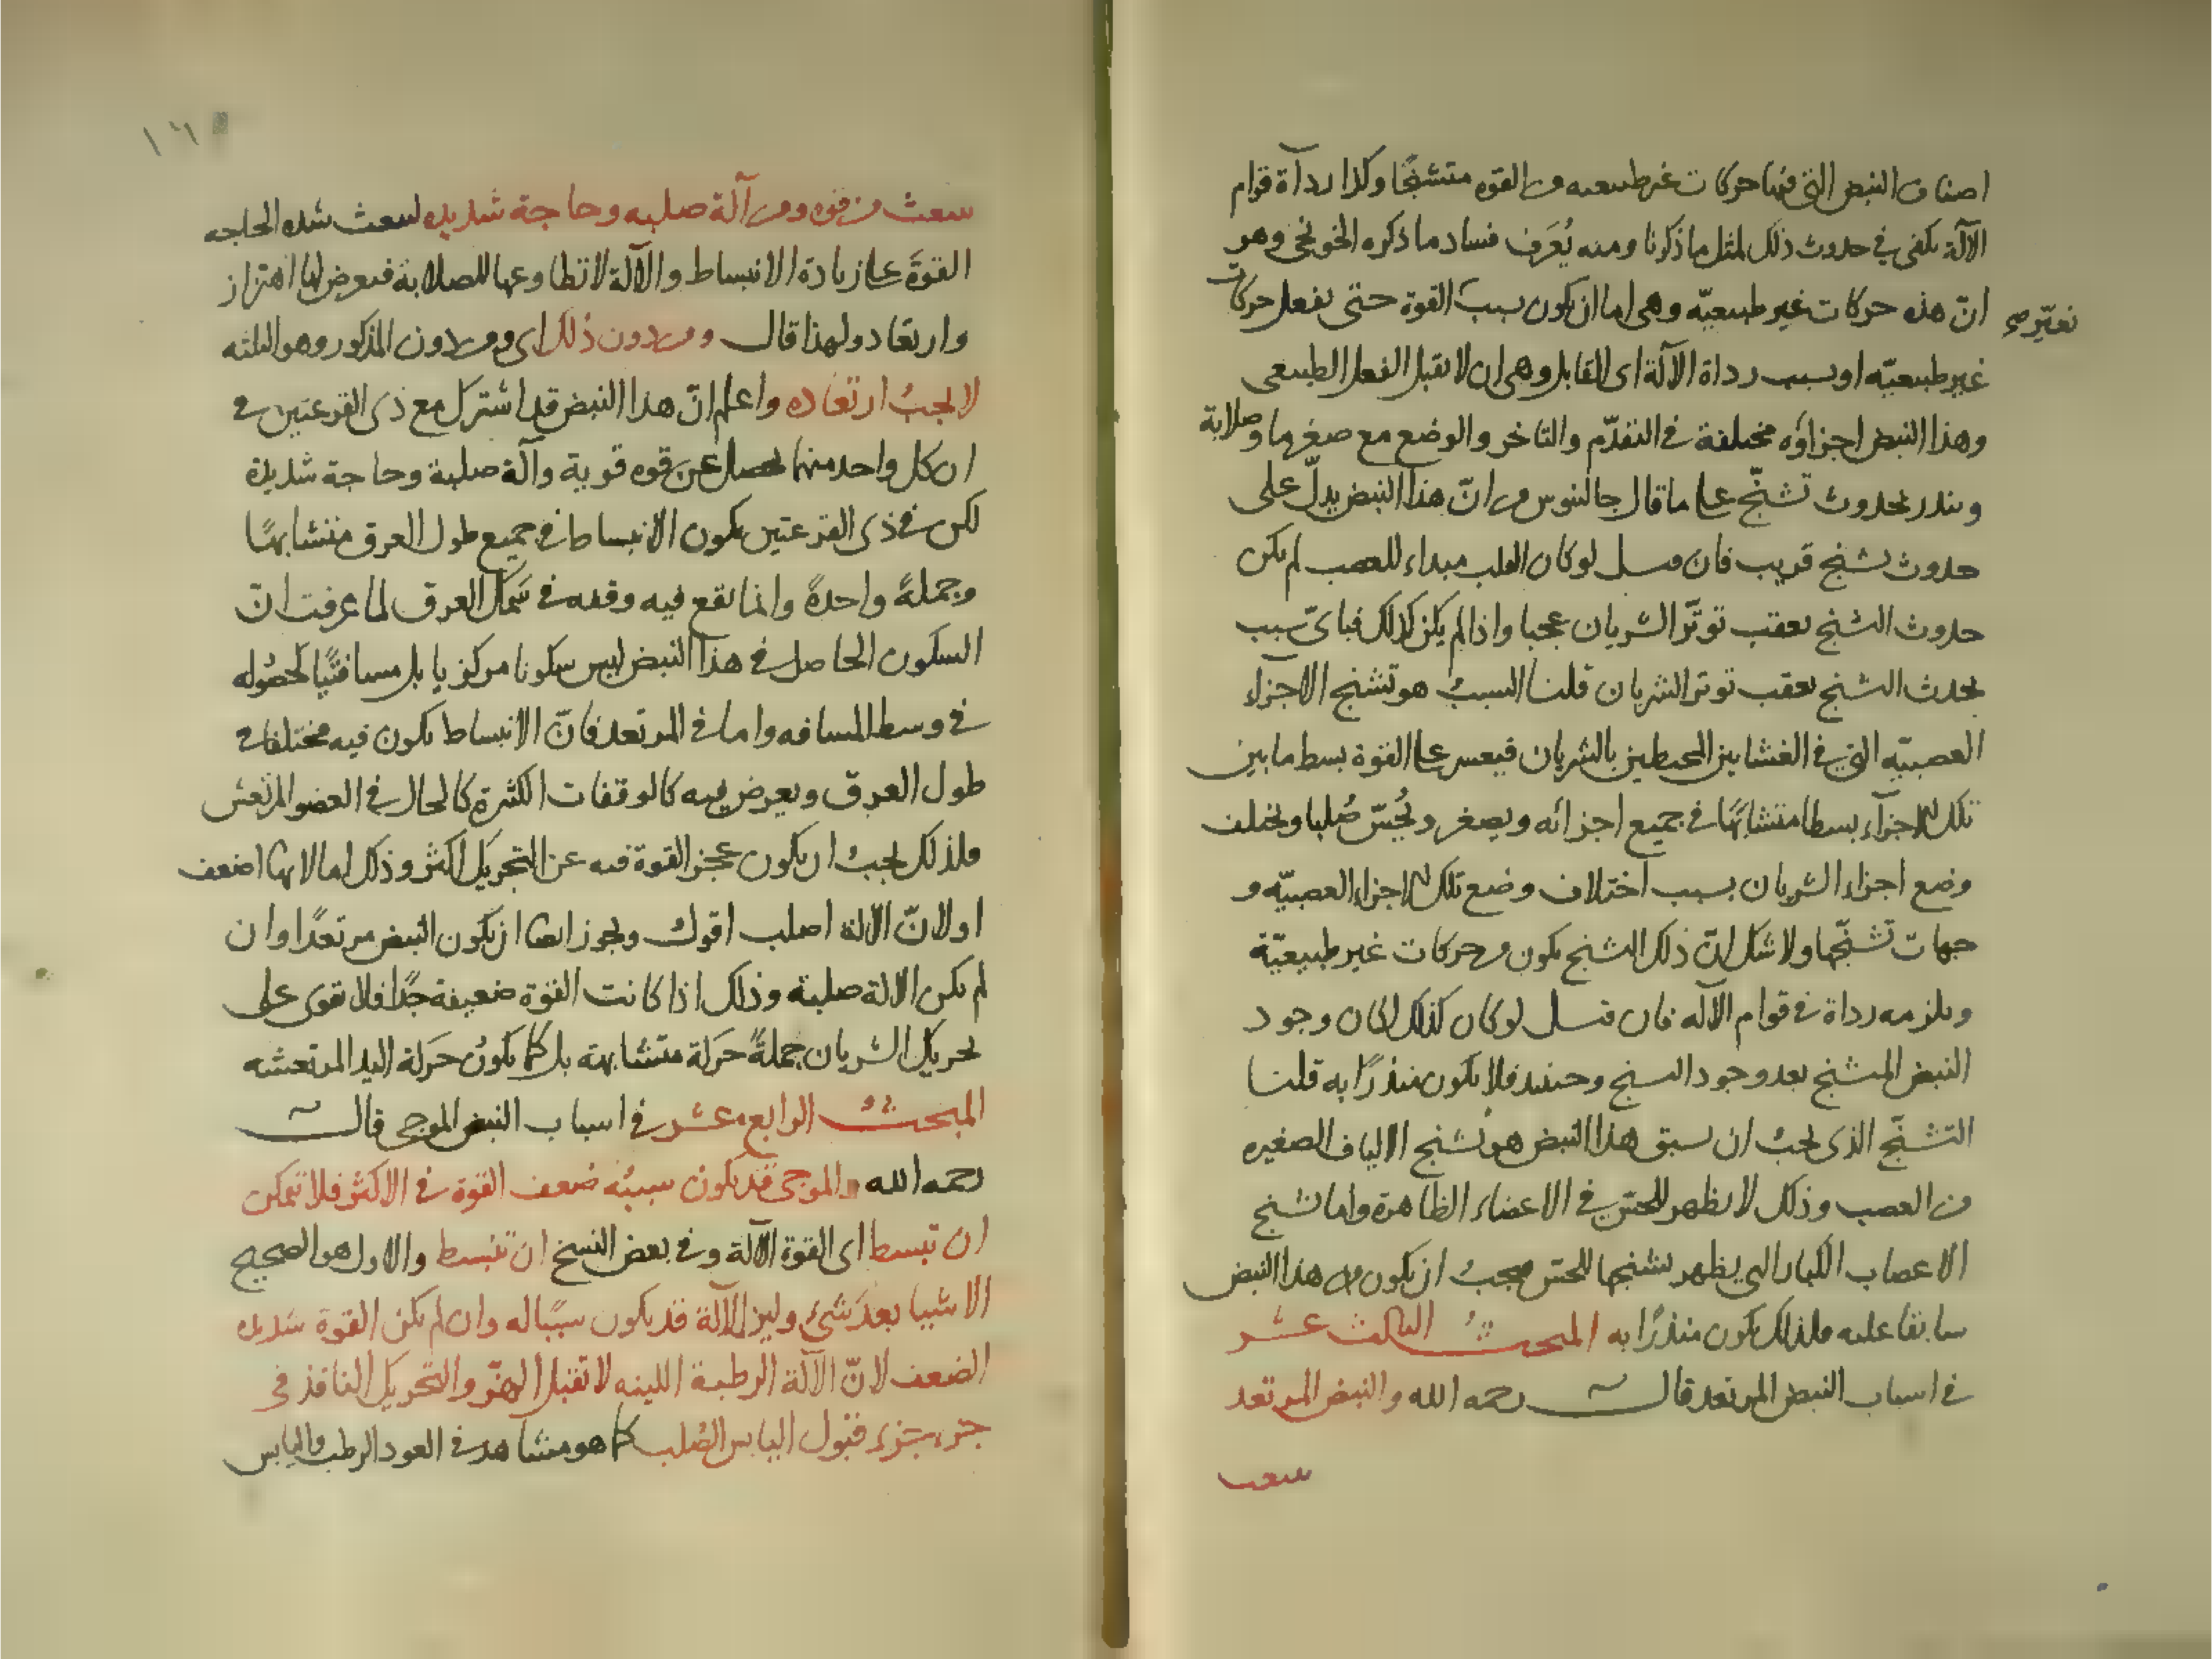 اصناف النبض التى فيها حركات غير طبيعيه ومن القوه متشنجًا وكذا ردآة قوام
الآلة تكفى فى حدوث ذلك لمثل ما ذكرنا ومنه يُعَرف فساد ما ذكره الخونجى وهو
انّ هذه حركات غير طبيعيّه وهى اما ان يكون بسبب القوة حتى تفعل حركات
غير طبيعيّه او بسبب رداة الآلة اى القابل وهى ان لا تقبل الفعل الطبيعى
وهذا النبض اجزاؤه مختلفة فى التقدّم والتاخر والوضع مع صغرها وصلابة
وينذر بحدوث تشنّج على ما قال جالينوس من انّ هذا النبض يدلّ على
حدوث تشنج قريب فان قيل لو كان القلب مبداء للعصب لم يكن
حدوث التشنج بعقب توتّر الشريان عجبا واذا لم يكن كذلك فباىّ سبب
يحدث التشنج بعقب توتر الشريان قلنا السببُ هو تشنج الاجزآء
العصبيّه التى فى الغشايين المحيطين بالشريان فيعسر على القوة بسط ما بين
تلك الاجزآء بسطا متشابهًا فى جميع اجزائه ويصغر ويُجَسّ صُلبا ويختلف
وضع اجزاء الشريان بسبب اختلاف وضع تلك الاجزاء العصبيّه و
جهات تشنّجها ولا شك انّ ذلك التشنج يكون من حركات غير طبيعيّة
ويلزمه رداة فى قوام الآله فان قيل لو كان كذلك لكان وجود
النبض المتشنج بعد وجود التشنج وحينئذ فلا يكون منذرًا به قلنا
التشنّج الذى يجبُ ان يسبق هذا النبض هو تشنج الالياف الصغيره
من العصب وذلك لا يظهر للحسّ فى الاعضاء الظاهرة واما تشنج
الاعصاب الكبار التى يظهر تشنجها للحسّ فيجبُ ان يكون هذا النبض
سابقا عليه فلذلك يكون منذرًا به المبحث الثالث عشر
فى اسباب النبض المرتعد قال رحمه الله والنبض المرتعد
ينبعث
تغيّر صح
ينبعث من قوه ومن آلة صلبه وحاجة شديده لينبعث شده الحاجه
القوةَ على زيادة الانبساط والآلة لا تطاوعها للصلابة فيعرض لها اهتزاز
وارتعاد ولهذا قال ومن دون ذلك اى ومن دون المذكور وهو الثلثه
لا يجبُ ارتعاده واعلم انّ هذا النبض قد اشترك مع ذى القرعتين فى
ان كل واحد منهما يحصل عن قوه قوية وآلة صلبة وحاجة شديدة
لكن فى ذى القرعتين يكون الانبساط فى جميع طول العرق متشابهًا
وجملةً واحدةً وانما يقع فيه وقفه فى سَمك العرق لما عرفت انّ
السكون الحاصل فى هذا النبض ليس سكونا مركزيا بل مسافتيًا لحصُوله
فى وسط المسافه واما فى المرتعد فانّ الانبساط يكون فيه مختلفا فى
طول العرق ويعرض فيه كالوقفات الكثيرة كالحال فى العضو المرتعش
فلذلك يجبُ ان يكون عجز القوة فيه عن التحريك اكثر وذلك اما لانها اضعف
او لانّ الآلة اصلب اقول ويجوز ايضا ان يكون النبض مرتعدًا وان
لم يكن الالة صلبة وذلك اذا كانت القوة ضعيفة جدًا فلا تقوى على
تحريك الشريان جملةً حركة متشابهة بل كما يكونُ حركة اليد المرتعشه
المبحث الرابع عشر فى اسباب النبض الموجى قال
رحمه الله والموجى قد يكون سببُه ضعف القوة فى الاكثر فلا تتمكن
ان تبسط اى القوة الآلة وفى بعض النسخ ان تنبسط والاول هو الصحيح
الا شيئا بعدَ شئ ولين الآلة قد يكون سببًا له وان لم يكن القوة شديده
الضعف لانّ الآلة الرطبة اللينه لا تقبل الهزّ والتحريك النافذ فى
جزء جزء قبول اليابس الصُلب كما هو مشاهد فى العود الرطب واليابس